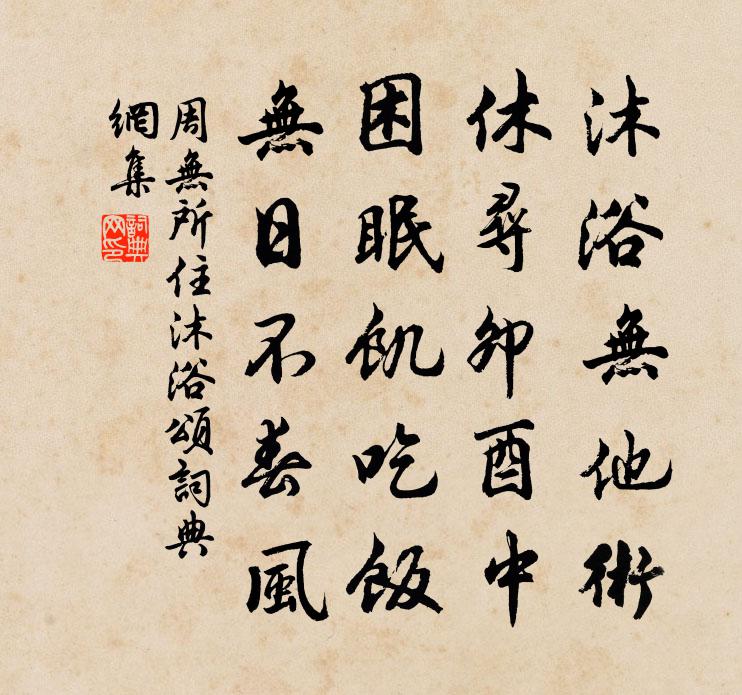 沐浴無他術
休尋卯酉中
困眠飢吃飯
無日不春風
周無所住沐浴頌詞典
網集
詞典
网印